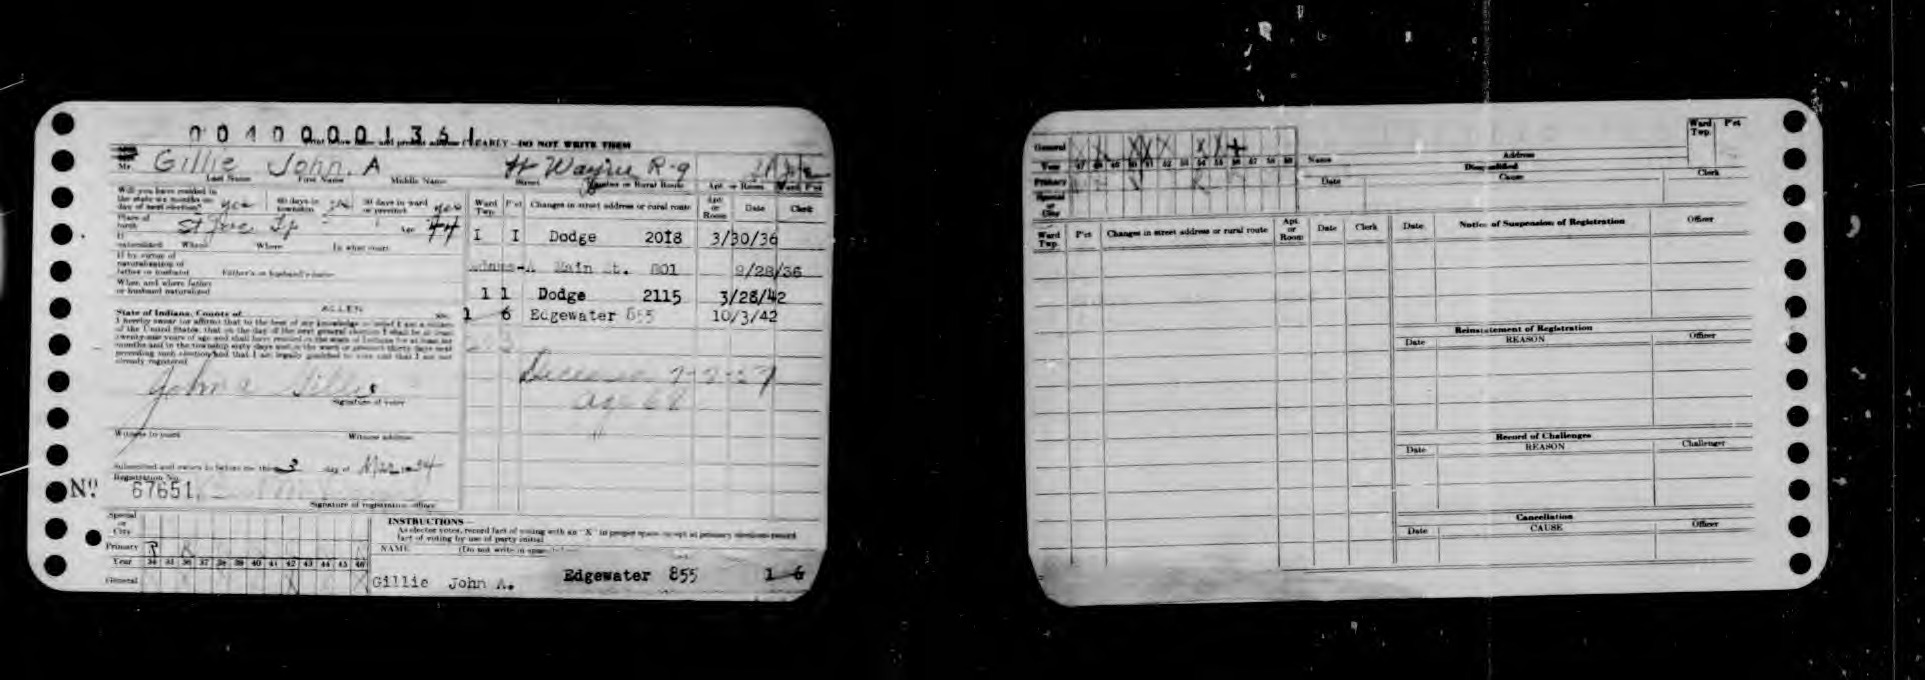 00400001361
Print below name and present address CLEARLY—DO NOT WRITE THEM
Mr. Gillie John. A Ft Wayne R-9 St Joe
Last Name First Name Middle Name Street Number or Rural Route Apt. or Room Ward P'ct
Will you have resided in the state six months on day of next election? yes 60 days in township yes 30 days in ward or precinct yes
Ward Twp. P'ct Changes in street address or rural route Apt. or Room Date Clerk
Place of birth St Joe Tp Age 44
I I Dodge 2018 3/30/36
If naturalized When Where In what court
If by virtue of naturalization of father or husband Father's or husband's name
Main St. 801 9/28/36
When and where father or husband naturalized
1 1 Dodge 2115 3/28/42
State of Indiana, County of ALLEN ss:
1 6 Edgewater 855 10/3/42
I hereby swear (or affirm) that to the best of my knowledge and belief I am a citizen
of the United States, that on the day of the next general election I shall be at least
twenty-one years of age and shall have resided in the state of Indiana for at least six
months and in the township sixty days and in the ward or precinct thirty days next
preceding such election and that I am legally qualified to vote and that I am not
already registered
Deceased 7-7-57
age 68
John A Gillie
Signature of voter
Witness to mark Witness address
Subscribed and sworn to before me this 3 day of Mar 1934
Registration No.
Nº 67651
Signature of registration officer
Special or City
Primary R R
Year 34 35 36 37 38 39 40 41 42 43 44 45 46
General X X
INSTRUCTIONS—
As elector votes, record fact of voting with an "X" in proper space except at primary elections record
fact of voting by use of party initial
NAME (Do not write in space below)
Gillie John A. Edgewater 855 1-6
General X X X X X X X +
Year 47 48 49 50 51 52 53 54 55 56 57 58 59
Primary
Special or City
Name Address
Ward Twp. P'ct
Disqualified
Date Cause Clerk
Ward Twp. P'ct Changes in street address or rural route Apt. or Room Date Clerk
Date Notice of Suspension of Registration Officer
Reinstatement of Registration
Date REASON Officer
Record of Challenges
Date REASON Challenger
Cancellation
Date CAUSE Officer